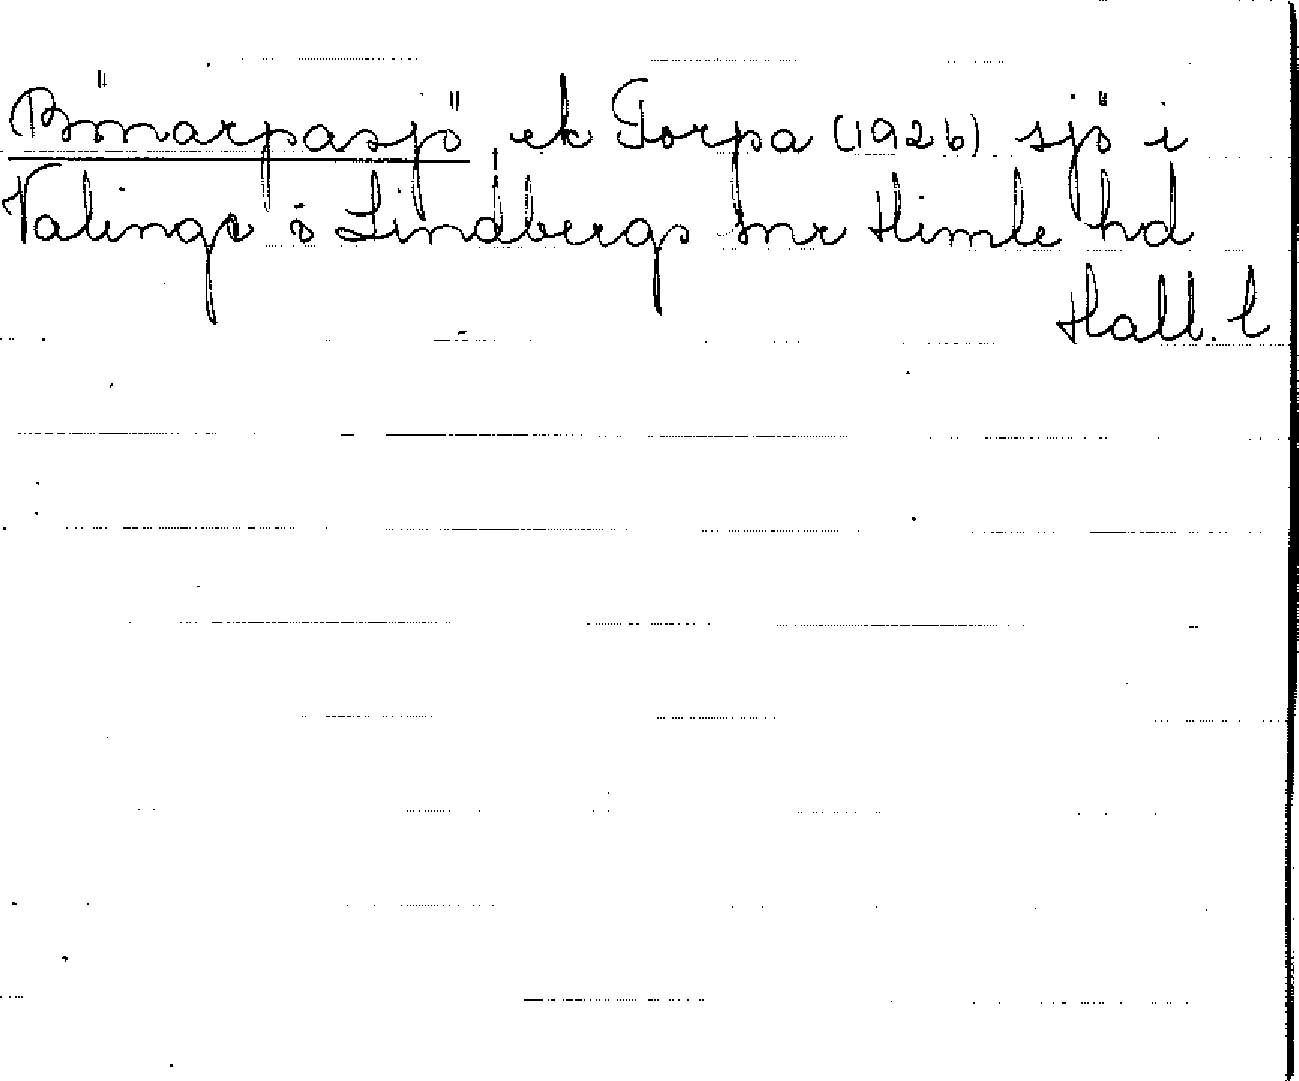 Bönarpasjö, ek Torpa (1926) sjö i
Valinge o Lindbergs snr Himle hd
Hall. l